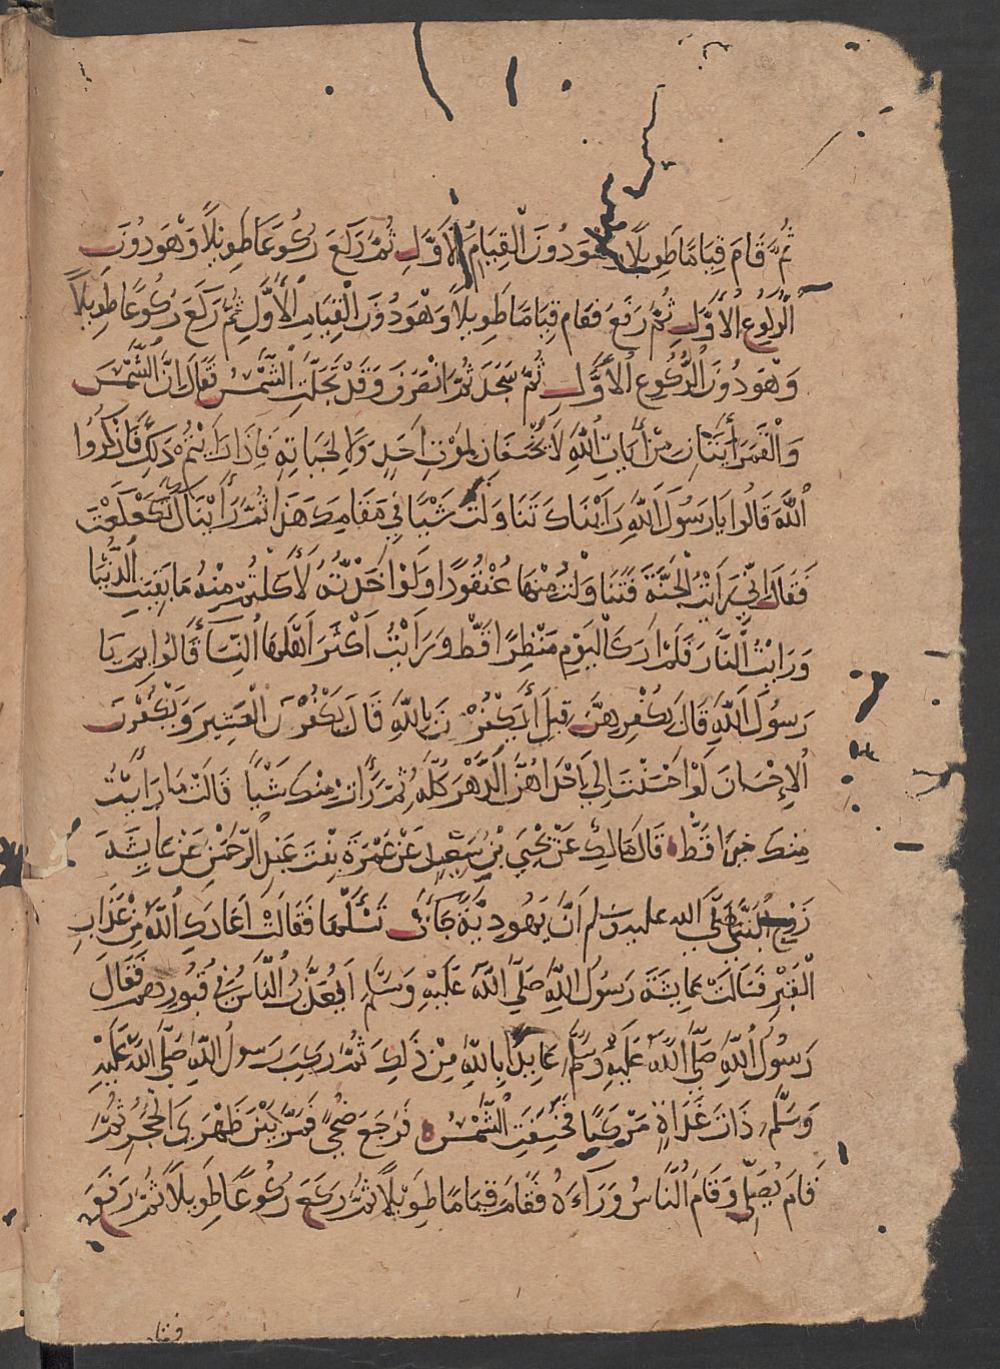 ثُمَّ قَامَ قِيَامًا طَوِيلًا وَهُوَ دُونَ الْقِيَامِ الْأَوَّلِ ثُمَّ رَكَعَ رُكُوعًا طَوِيلًا وَهُوَ دُونَ
الرُّكُوعِ الْأَوَّلِ ثُمَّ رَفَعَ فَقَامَ قِيَامًا طَوِيلًا وَهُوَ دُونَ الْقِيَامِ الْأَوَّلِ ثُمَّ رَكَعَ رُكُوعًا طَوِيلًا
وَهُوَ دُونَ الرُّكُوعِ الْأَوَّلِ ثُمَّ سَجَدَ ثُمَّ انْصَرَفَ وَقَدْ تَجَلَّتِ الشَّمْسُ فَقَالَ إِنَّ الشَّمْسَ
وَالْقَمَرَ آيَتَانِ مِنْ آيَاتِ اللَّهِ لَا يَخْسِفَانِ لِمَوْتِ أَحَدٍ وَلَا لِحَيَاتِهِ فَإِذَا رَأَيْتُمْ ذَلِكَ فَاذْكُرُوا
اللَّهَ قَالُوا يَا رَسُولَ اللَّهِ رَأَيْنَاكَ تَنَاوَلْتَ شَيْئًا فِي مَقَامِكَ هَذَا ثُمَّ رَأَيْنَاكَ تَكَعْكَعْتَ
فَقَالَ إِنِّي رَأَيْتُ الْجَنَّةَ فَتَنَاوَلْتُ مِنْهَا عُنْقُودًا وَلَوْ أَخَذْتُهُ لَأَكَلْتُمْ مِنْهُ مَا بَقِيَتِ الدُّنْيَا
وَرَأَيْتُ النَّارَ فَلَمْ أَرَ كَالْيَوْمِ مَنْظَرًا قَطُّ وَرَأَيْتُ أَكْثَرَ أَهْلِهَا النِّسَاءَ قَالُوا بِمَ يَا
رَسُولَ اللَّهِ قَالَ بِكُفْرِهِنَّ قِيلَ أَيَكْفُرْنَ بِاللَّهِ قَالَ يَكْفُرْنَ الْعَشِيرَ وَيَكْفُرْنَ
الْإِحْسَانَ لَوْ أَحْسَنْتَ إِلَى إِحْدَاهُنَّ الدَّهْرَ كُلَّهُ ثُمَّ رَأَتْ مِنْكَ شَيْئًا قَالَتْ مَا رَأَيْتُ
مِنْكَ خَيْرًا قَطُّ قَالَ مَالِكٌ عَنْ يَحْيَى بْنِ سَعِيدٍ عَنْ عَمْرَةَ بِنْتِ عَبْدِ الرَّحْمَنِ عَنْ عَائِشَةَ
زَوْجِ النَّبِيِّ صَلَّى الله عليه وسلم أَنَّ يَهُودِيَّةً جَاءَتْ تَسْأَلُهَا فَقَالَتْ أَعَاذَكِ اللَّهُ مِنْ عَذَابِ
الْقَبْرِ فَسَأَلَتْ عَائِشَةُ رَسُولَ اللَّهِ صَلَّى اللَّهُ عَلَيْهِ وَسَلَّمَ أَيُعَذَّبُ النَّاسُ فِي قُبُورِهِمْ فَقَالَ
رَسُولُ اللَّهِ صَلَّى اللَّهُ عَلَيْهِ وَسَلَّمَ عَائِذًا بِاللَّهِ مِنْ ذَلِكَ ثُمَّ رَكِبَ رَسُولُ اللَّهِ صَلَّى اللَّهُ عَلَيْهِ
وَسَلَّمَ ذَاتَ غَدَاةٍ مَرْكَبًا فَخَسَفَتِ الشَّمْسُ فَرَجَعَ ضُحًى فَمَرَّ بَيْنَ ظَهْرَيِ الْحُجَرِ ثُمَّ
قَامَ يُصَلِّي وَقَامَ النَّاسُ وَرَاءَهُ فَقَامَ قِيَامًا طَوِيلًا ثُمَّ رَكَعَ رُكُوعًا طَوِيلًا ثُمَّ رَفَعَ
فقام